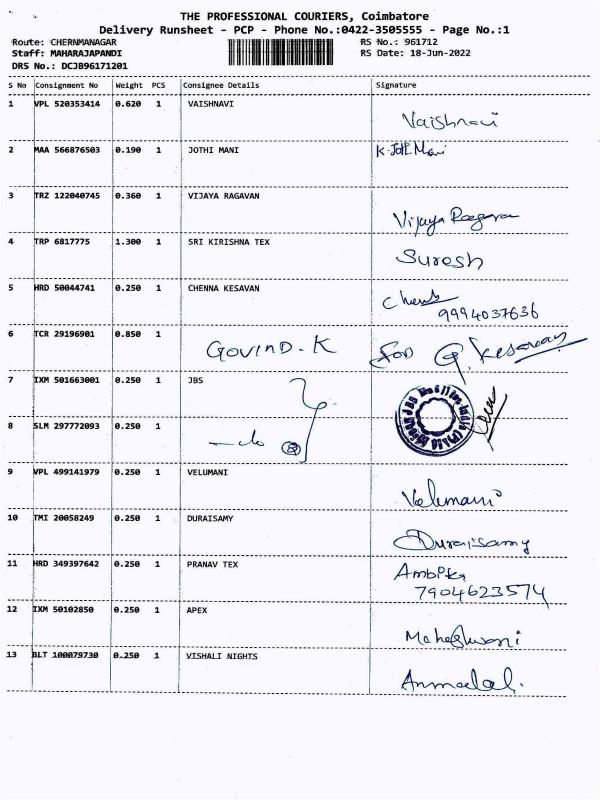 THE PROFESSIONAL COURIERS, Coimbatore
Delivery Runsheet - PCP - Phone No.:0422-3505555 - Page No.:1
Route: CHERNMANAGAR RS No.: 961712
Staff: MAHARAJAPANDI RS Date: 18-Jun-2022
DRS No.: DCJB96171201
S No Consignment No Weight PCS Consignee Details Signature
1 VPL 520353414 0.620 1 VAISHNAVI Vaishnavi
2 MAA 566876503 0.190 1 JOTHI MANI K. Jothi Mani
3 TRZ 122040745 0.360 1 VIJAYA RAGAVAN Vijaya Ragava
4 TRP 6817775 1.300 1 SRI KIRISHNA TEX Suresh
5 HRD 50044741 0.250 1 CHENNA KESAVAN
9994037636
6 TCR 29196901 0.850 1 GOVIND.K for G. Kesavan
7 IXM 501663001 0.250 1 JBS
8 SLM 297772093 0.250 1
9 VPL 499141979 0.250 1 VELUMANI Velumani
10 TMI 20058249 0.250 1 DURAISAMY Duraisamy
11 HRD 349397642 0.250 1 PRANAV TEX Ambika
7904623574
12 IXM 50102850 0.250 1 APEX Maheshwari
13 BLT 100079730 0.250 1 VISHALI NIGHTS